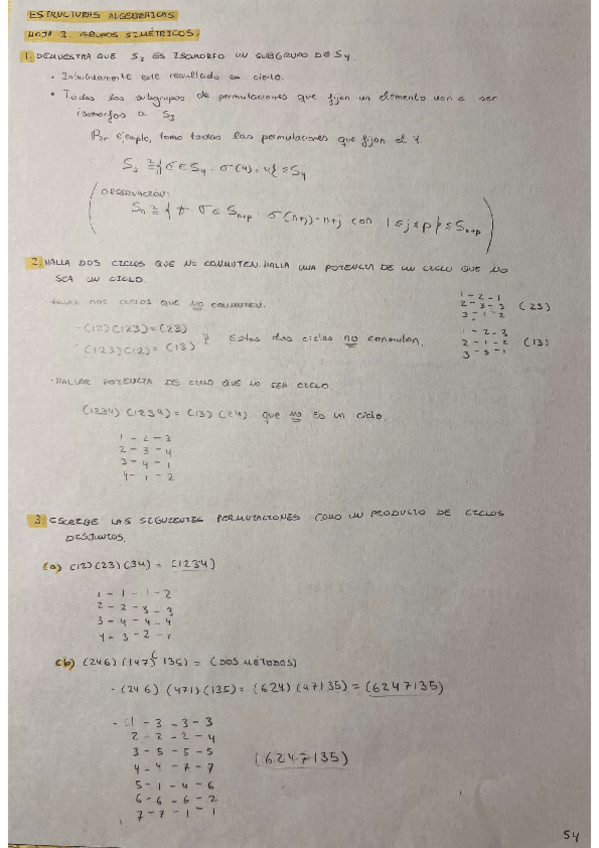 ESTRUCTURAS ALGEBRAICAS
HOJA 3. GRUPOS SIMÉTRICOS.
1. DEMUESTRA QUE S₃ ES ISOMORFO UN SUBGRUPO DE S₄.
• Intuitivamente este resultado es cierto.
• Todos los subgrupos de permutaciones que fijan un elemento van a ser
isomorfos a S₃
Por ejemplo, tomo todas las permutaciones que fijan el 4.
S₃ ≅ { σ ∈ S₄ : σ(4) = 4 } ≤ S₄
OBSERVACIÓN:
Sₙ ≅ { σ ∈ Sₙ₊ₚ : σ(n+j) = n+j con 1 ≤ j ≤ p } ≤ Sₙ₊ₚ
2. HALLA DOS CICLOS QUE NO CONMUTEN. HALLA UNA POTENCIA DE UN CICLO QUE NO
SEA UN CICLO.
· HALLAR DOS CICLOS QUE NO CONMUTEN.
- (12)(123) = (23)
- (123)(12) = (13) } Estos dos ciclos no conmutan.
1 - 2 - 1
2 - 3 - 3 (23)
3 - 1 - 2
1 - 2 - 3
2 - 1 - 2 (13)
3 - 3 - 1
· HALLAR POTENCIA DE CICLO QUE NO SEA CICLO
(1234)(1234) = (13)(24) que no es un ciclo.
1 - 2 - 3
2 - 3 - 4
3 - 4 - 1
4 - 1 - 2
3. ESCRIBE LAS SIGUIENTES PERMUTACIONES COMO UN PRODUCTO DE CICLOS
DISJUNTOS.
(a) (12)(23)(34) = (1234)
1 - 1 - 1 - 2
2 - 2 - 3 - 3
3 - 4 - 4 - 4
4 - 3 - 2 - 1
(b) (246)(147)(135) = (DOS MÉTODOS)
- (246)(471)(135) = (624)(47135) = (6247135)
- 1 - 3 - 3 - 3
2 - 2 - 2 - 4
3 - 5 - 5 - 5
4 - 4 - 7 - 7
5 - 1 - 4 - 6
6 - 6 - 6 - 2
7 - 7 - 1 - 1
(6247135)
54